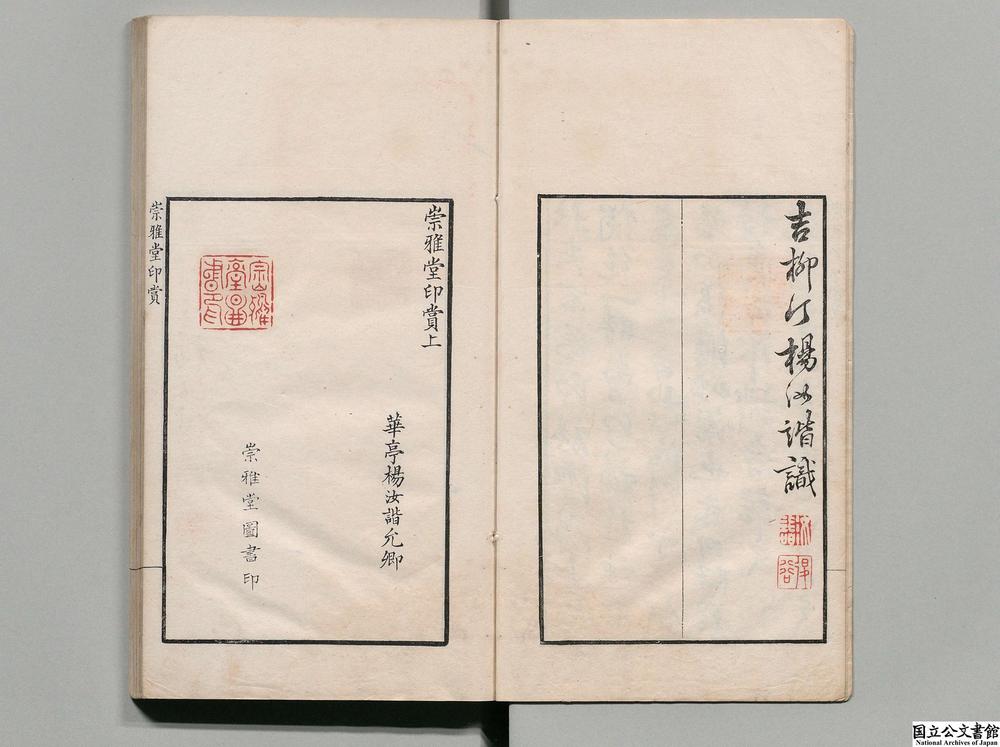 吉柳汀楊汝諧識
崇雅堂印賞上
華亭楊汝諧允卿
崇雅堂圖書印
崇雅堂印賞
国立公文書館
National Archives of Japan